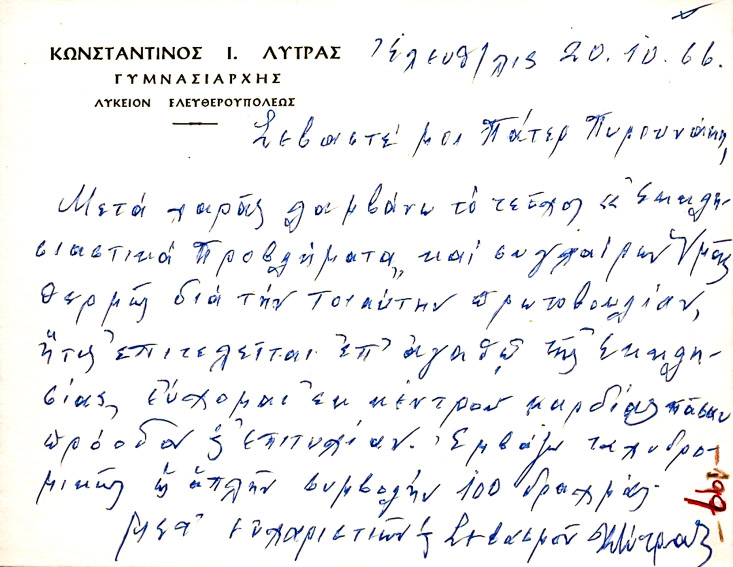 ΚΩΝΣΤΑΝΤΙΝΟΣ Ι. ΛΥΤΡΑΣ
ΓΥΜΝΑΣΙΑΡΧΗΣ
ΛΥΚΕΙΟΝ ΕΛΕΥΘΕΡΟΥΠΟΛΕΩΣ
Ἐλευθ/λις 20.10.66.
Σεβαστέ μοι Πάτερ Πυρουνάκη,
Μετά χαρᾶς λαμβάνω τό τεῦχος "Ἐκκλη-
σιαστικά Προβλήματα" καί συγχαίρων Ὑμᾶς
θερμῶς διά τήν τοιαύτην πρωτοβουλίαν,
ἥτις ἐπιτελεῖται ἐπ' ἀγαθῷ τῆς Ἐκκλη-
σίας, εὔχομαι ἐκ κέντρου καρδίας πᾶσαν
πρόοδον & ἐπιτυχίαν. Ἐμβάζω ταχυδρο-
μικῶς ὡς ἁπλῆν συμβολήν 100 δραχμάς.
Μετ' εὐχαριστιῶν & Σεβασμοῦ ΚΛύτρας